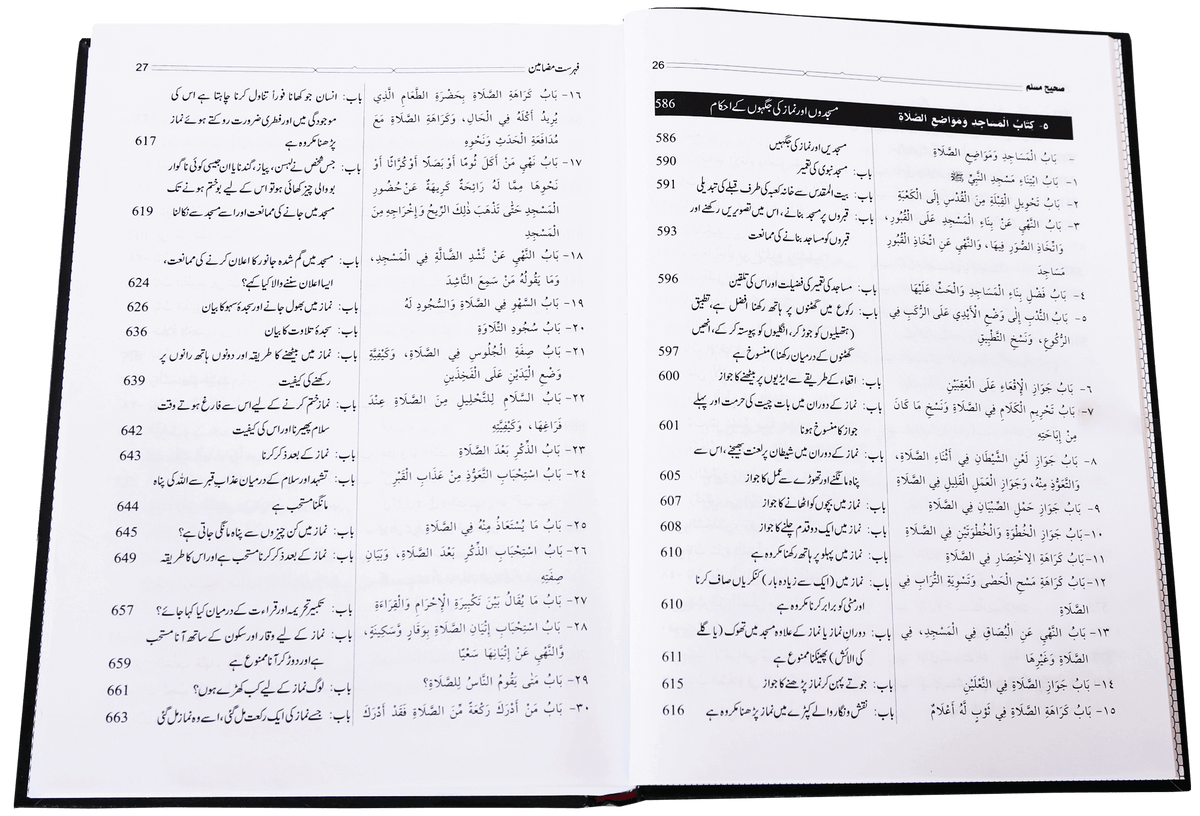 صحیح مسلم
26
٥- كتاب المساجد ومواضع الصلاة
مسجدوں اور نماز کی جگہوں کے احکام
586
- بَابُ الْمَسَاجِدِ وَمَوَاضِعِ الصَّلَاةِ
مسجدیں اور نماز کی جگہیں
586
١- بَابُ ابْتِنَاءِ مَسْجِدِ النَّبِيِّ ﷺ
باب: مسجد نبوی کی تعمیر
590
٢- بَابُ تَحْوِيلِ الْقِبْلَةِ مِنَ الْقُدْسِ إِلَى الْكَعْبَةِ
باب: بیت المقدس سے خانہ کعبہ کی طرف قبلے کی تبدیلی
591
٣- بَابُ النَّهْيِ عَنْ بِنَاءِ الْمَسْجِدِ عَلَى الْقُبُورِ،
باب: قبروں پر مسجد بنانے، اس میں تصویریں رکھنے اور
وَاتِّخَاذِ الصُّوَرِ فِيهَا، وَالنَّهْيِ عَنِ اتِّخَاذِ الْقُبُورِ
قبروں کو مساجد بنانے کی ممانعت
593
مَسَاجِدَ
٤- بَابُ فَضْلِ بِنَاءِ الْمَسَاجِدِ وَالْحَثِّ عَلَيْهَا
باب: مساجد کی تعمیر کی فضیلت اور اس کی تلقین
596
٥- بَابُ النَّدْبِ إِلَى وَضْعِ الْأَيْدِي عَلَى الرُّكَبِ فِي
باب: رکوع میں گھٹنوں پر ہاتھ رکھنا افضل ہے، تطبیق
الرُّكُوعِ، وَنَسْخِ التَّطْبِيقِ
(ہتھیلیوں کو جوڑ کر، انگلیوں کو پیوستہ کر کے، انھیں
گھٹنوں کے درمیان رکھنا) منسوخ ہے
597
٦- بَابُ جَوَازِ الْإِقْعَاءِ عَلَى الْعَقِبَيْنِ
باب: اقعاء کے طریقے سے ایڑیوں پر بیٹھنے کا جواز
600
٧- بَابُ تَحْرِيمِ الْكَلَامِ فِي الصَّلَاةِ وَنَسْخِ مَا كَانَ
باب: نماز کے دوران میں بات چیت کی حرمت اور پہلے
مِنْ إِبَاحَتِهِ
جواز کا منسوخ ہونا
601
٨- بَابُ جَوَازِ لَعْنِ الشَّيْطَانِ فِي أَثْنَاءِ الصَّلَاةِ،
باب: نماز کے دوران میں شیطان پر لعنت بھیجنے، اس سے
وَالتَّعَوُّذِ مِنْهُ، وَجَوَازِ الْعَمَلِ الْقَلِيلِ فِي الصَّلَاةِ
پناہ مانگنے اور تھوڑے سے عمل کا جواز
605
٩- بَابُ جَوَازِ حَمْلِ الصِّبْيَانِ فِي الصَّلَاةِ
باب: نماز میں بچوں کو اٹھانے کا جواز
607
١٠- بَابُ جَوَازِ الْخُطْوَةِ وَالْخُطْوَتَيْنِ فِي الصَّلَاةِ
باب: نماز میں ایک دو قدم چلنے کا جواز
608
١١- بَابُ كَرَاهَةِ الِاخْتِصَارِ فِي الصَّلَاةِ
باب: نماز میں پہلو پر ہاتھ رکھنا مکروہ ہے
610
١٢- بَابُ كَرَاهَةِ مَسْحِ الْحَصَى وَتَسْوِيَةِ التُّرَابِ فِي
باب: نماز میں (ایک سے زیادہ بار) کنکریاں صاف کرنا
الصَّلَاةِ
اور مٹی کو برابر کرنا مکروہ ہے
610
١٣- بَابُ النَّهْيِ عَنِ الْبُصَاقِ فِي الْمَسْجِدِ، فِي
باب: دوران نماز یا نماز کے علاوہ مسجد میں تھوک (یا گلے
الصَّلَاةِ وَغَيْرِهَا
کی آلائش) پھینکنا ممنوع ہے
611
١٤- بَابُ جَوَازِ الصَّلَاةِ فِي النَّعْلَيْنِ
باب: جوتے پہن کر نماز پڑھنے کا جواز
615
١٥- بَابُ كَرَاهَةِ الصَّلَاةِ فِي ثَوْبٍ لَّهُ أَعْلَامٌ
باب: نقش و نگار والے کپڑے میں نماز پڑھنا مکروہ ہے
616
فہرست مضامین
27
١٦- بَابُ كَرَاهَةِ الصَّلَاةِ بِحَضْرَةِ الطَّعَامِ الَّذِي
باب: انسان جو کھانا فوراً تناول کرنا چاہتا ہے اس کی
يُرِيدُ أَكْلَهُ فِي الْحَالِ، وَكَرَاهَةِ الصَّلَاةِ مَعَ
موجودگی میں اور فطری ضرورت روکتے ہوئے نماز
مُدَافَعَةِ الْحَدَثِ وَنَحْوِهِ
پڑھنا مکروہ ہے
617
١٧- بَابُ نَهْيِ مَنْ أَكَلَ ثُومًا أَوْ بَصَلًا أَوْ كُرَّاثًا أَوْ
باب: جس شخص نے لہسن، پیاز، گندنا یا ان جیسی کوئی ناگوار
نَحْوَهَا مِمَّا لَهُ رَائِحَةٌ كَرِيهَةٌ عَنْ حُضُورِ
بو والی چیز کھائی ہو تو اس کے لیے بو ختم ہونے تک
الْمَسْجِدِ حَتَّى تَذْهَبَ ذٰلِكَ الرِّيحُ وَإِخْرَاجِهِ مِنَ
مسجد میں جانے کی ممانعت اور اسے مسجد سے نکالنا
619
الْمَسْجِدِ
١٨- بَابُ النَّهْيِ عَنْ نَّشْدِ الضَّالَّةِ فِي الْمَسْجِدِ،
باب: مسجد میں گم شدہ جانور کا اعلان کرنے کی ممانعت،
وَمَا يَقُولُهُ مَنْ سَمِعَ النَّاشِدَ
ایسا اعلان سننے والا کیا کہے؟
624
١٩- بَابُ السَّهْوِ فِي الصَّلَاةِ وَالسُّجُودِ لَهُ
باب: نماز میں بھول جانے اور سجدۂ سہو کا بیان
626
٢٠- بَابُ سُجُودِ التِّلَاوَةِ
باب: سجدۂ تلاوت کا بیان
636
٢١- بَابُ صِفَةِ الْجُلُوسِ فِي الصَّلَاةِ، وَكَيْفِيَّةِ
باب: نماز میں بیٹھنے کا طریقہ اور دونوں ہاتھ رانوں پر
وَضْعِ الْيَدَيْنِ عَلَى الْفَخِذَيْنِ
رکھنے کی کیفیت
639
٢٢- بَابُ السَّلَامِ لِلتَّحْلِيلِ مِنَ الصَّلَاةِ عِنْدَ
باب: نماز ختم کرنے کے لیے اس سے فارغ ہوتے وقت
فَرَاغِهَا، وَكَيْفِيَّتِهِ
سلام پھیرنا اور اس کی کیفیت
642
٢٣- بَابُ الذِّكْرِ بَعْدَ الصَّلَاةِ
باب: نماز کے بعد ذکر کرنا
643
٢٤- بَابُ اسْتِحْبَابِ التَّعَوُّذِ مِنْ عَذَابِ الْقَبْرِ
باب: تشہد اور سلام کے درمیان عذاب قبر سے اللہ کی پناہ
مانگنا مستحب ہے
644
٢٥- بَابُ مَا يُسْتَعَاذُ مِنْهُ فِي الصَّلَاةِ
باب: نماز میں کن چیزوں سے پناہ مانگی جاتی ہے؟
645
٢٦- بَابُ اسْتِحْبَابِ الذِّكْرِ بَعْدَ الصَّلَاةِ، وَبَيَانِ
باب: نماز کے بعد ذکر کرنا مستحب ہے اور اس کا طریقہ
649
صِفَتِهِ
٢٧- بَابُ مَا يُقَالُ بَيْنَ تَكْبِيرَةِ الْإِحْرَامِ وَالْقِرَاءَةِ
باب: تکبیر تحریمہ اور قراءت کے درمیان کیا کہا جائے؟
657
٢٨- بَابُ اسْتِحْبَابِ إِتْيَانِ الصَّلَاةِ بِوَقَارٍ وَّسَكِينَةٍ،
باب: نماز کے لیے وقار اور سکون کے ساتھ آنا مستحب
وَّالنَّهْيِ عَنْ إِتْيَانِهَا سَعْيًا
ہے اور دوڑ کر آنا ممنوع ہے
659
٢٩- بَابُ مَتَى يَقُومُ النَّاسُ لِلصَّلَاةِ؟
باب: لوگ نماز کے لیے کب کھڑے ہوں؟
661
٣٠- بَابُ مَنْ أَدْرَكَ رَكْعَةً مِّنَ الصَّلَاةِ فَقَدْ أَدْرَكَ
باب: جسے نماز کی ایک رکعت مل گئی، اسے وہ نماز مل گئی
663